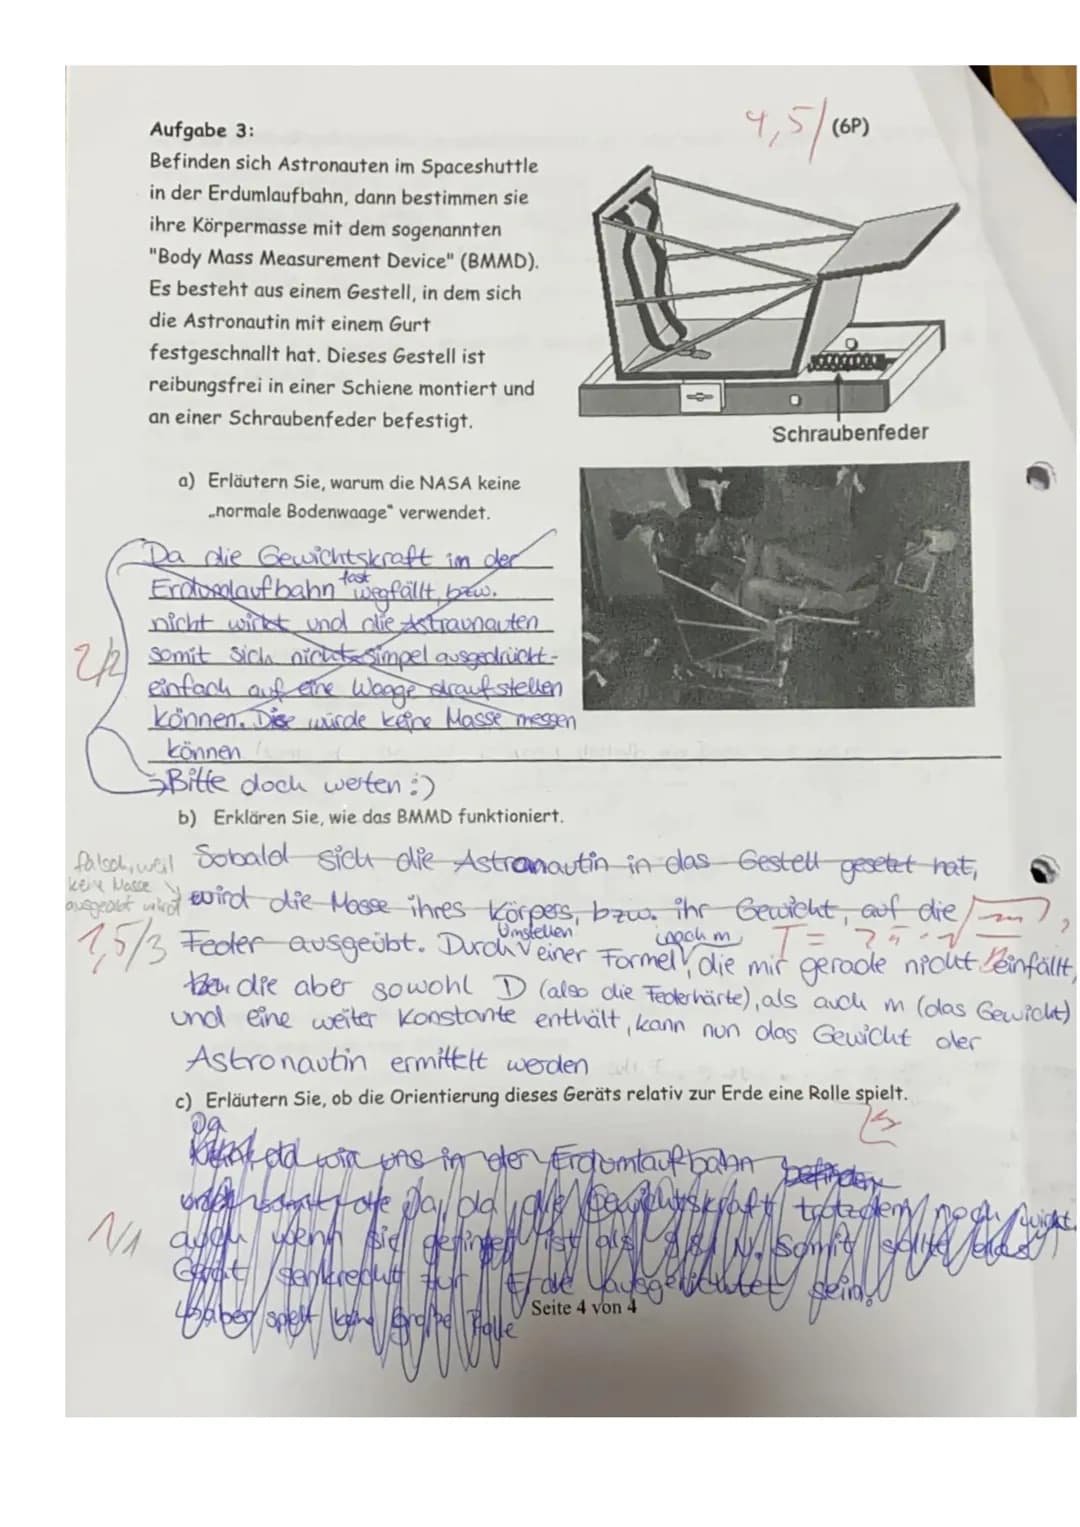 4,5/ (6P)
Aufgabe 3:
Befinden sich Astronauten im Spaceshuttle
in der Erdumlaufbahn, dann bestimmen sie
ihre Körpermasse mit dem sogenannten
"Body Mass Measurement Device" (BMMD).
Es besteht aus einem Gestell, in dem sich
die Astronautin mit einem Gurt
festgeschnallt hat. Dieses Gestell ist
reibungsfrei in einer Schiene montiert und
an einer Schraubenfeder befestigt.
Schraubenfeder
a) Erläutern Sie, warum die NASA keine
„normale Bodenwaage" verwendet.
Da die Gewichtskraft im der
Erdumlaufbahn fast wegfällt, bzw.
nicht wirkt und die Astraunauten
2/2 somit sich nicht simpel ausgedrückt
einfach auf eine Waage draufstellen
können. Dise würde keine Masse messen
können
Bitte doch werten :)
b) Erklären Sie, wie das BMMD funktioniert.
falsch, weil
keine Masse
ausgeübt wird
1,5/3
Sobald sich die Astronautin in das Gestell gesetzt hat,
wird die Masse ihres Körpers, bzw. ihr Gewicht, auf die
Feder ausgeübt. Durch Umstellen einer Formel (nach m), die mir gerade nicht einfällt,
T = 2π · √m
die aber sowohl D (also die Federhärte), als auch m (das Gewicht)
und eine weiter Konstante enthält, kann nun das Gewicht der
Astronautin ermittelt werden
c) Erläutern Sie, ob die Orientierung dieses Geräts relativ zur Erde eine Rolle spielt.
Da
wir uns in der Erdumlaufbahn befinden
die Gewichtskraft trotzdem noch wirkt
1/1 auch wenn sie geringer ist als 9,81 N. Somit sollte das
Gerät senkrecht zur Erde ausgerichtet sein.
aber spielt keine große Rolle
Seite 4 von 4